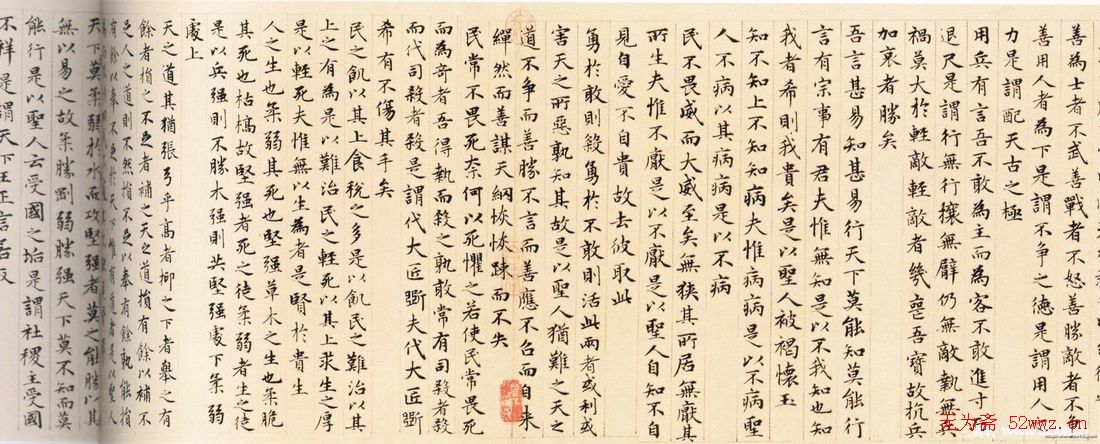 善為士者不武善戰者不怒善勝敵者不争
善用人者為下是謂不争之德是謂用人之
力是謂配天古之極
用兵有言吾不敢為主而為客不敢進寸而
退尺是謂行無行攘無臂仍無敵執無兵
禍莫大於輕敵輕敵者幾喪吾寶故抗兵
加哀者勝矣
吾言甚易知甚易行天下莫能知莫能行
言有宗事有君夫惟無知是以不我知也知
我者希則我貴矣是以聖人被褐懷玉
知不知上不知知病夫惟病病是以不病聖
人不病以其病病是以不病
民不畏威而大威至矣無狹其所居無厭其
所生夫惟不厭是以不厭是以聖人自知不自
見自愛不自貴故去彼取此
勇於敢則殺勇於不敢則活此兩者或利或
害天之所惡孰知其故是以聖人猶難之天之
道不争而善勝不言而善應不召而自来
繟然而善謀天網恢恢踈而不失
民常不畏死奈何以死懼之若使民常畏死
而為奇者吾得執而殺之孰敢常有司殺者殺
而代司殺者殺是謂代大匠斲夫代大匠斲
希有不傷其手矣
民之飢以其上食稅之多是以飢民之難治以其
上之有為是以難治民之輕死以其上求生之厚
是以輕死夫惟無以生為者是賢於貴生
人之生也柔弱其死也堅强草木之生也柔脆
其死也枯槁故堅强者死之徒柔弱者生之徒
是以兵强則不勝木强則共堅强處下柔弱
處上
天之道其猶張弓乎高者抑之下者舉之有
餘者損之不足者補之天之道損有餘以補不
足人之道則不然損不足以奉有餘孰能損
有餘以奉不足於天下唯有道者是以聖人
天下莫柔弱於水而攻堅强者莫之能勝以其
無以易之故柔勝剛弱勝强天下莫不知而莫
能行是以聖人云受國之垢是謂社稷主受國
不祥是謂天下王正言若反
玉为斋 52wwz.cn